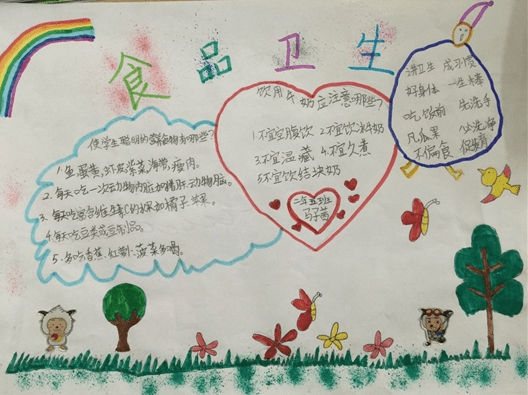 食品卫生
使学生聪明的食物有哪些?
1.鱼、蛋黄、虾皮、紫菜、海带、瘦肉。
2.每天吃一次动物内脏如猪肝、动物脑。
3.每天吃富含维生素C的水果如橘子、苹果。
4.每天吃豆类或豆制品。
5.多吃香蕉、红
菠菜
饮用牛奶应注意哪些?
1.不宜空腹饮 2.不宜饮冰奶
3.不宜温藏 4.不宜久煮
5.不宜饮结块奶
二年五班
讲卫生 成习惯
好身体 一生棒
吃饭前 先洗手
凡瓜果 必洗净
不偏食 保发育